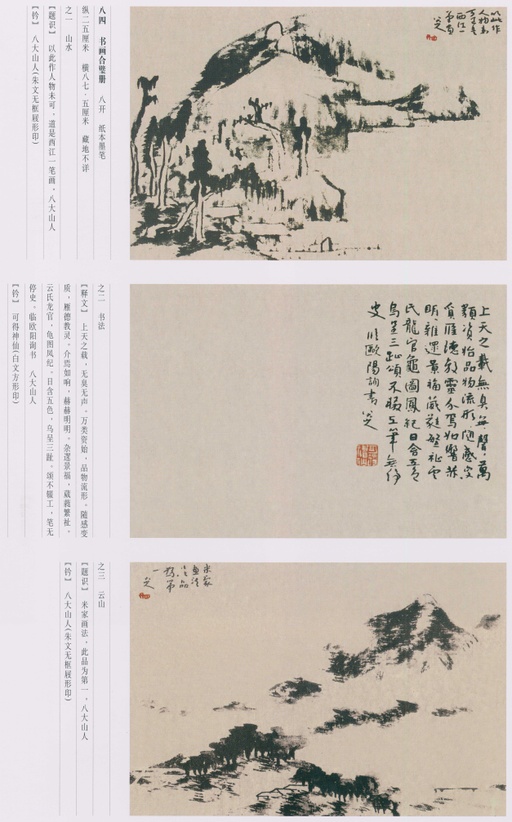 八四 书画合璧册 八开 纸本墨笔
纵二五厘米 横八七·五厘米 藏地不详
之一 山水
【题识】 以此作人物未可,道是西江一笔画。八大山人
【钤】 八大山人(朱文无框屐形印)
以此作
人物未
可道是
西江一
筆畫
之二 书法
【释文】 上天之载,无臭无声。万类资始,品物流形。随感变
质,雁德教灵。介焉如响,赫赫明明。杂遝景福,葳蕤繁祉。
云氏龙官,龟图凤纪。日含五色,乌呈三趾。颂不辍工,笔无
停史。临欧阳询书 八大山人
【钤】 可得神仙(白文方形印)
上天之載無臭無聲萬
類資始品物流形随感变
質雁德教靈介焉如響赫
明雜遝景福葳蕤繁祉雲
氏龍官龜圖鳳紀日含五色
烏呈三趾頌不輟工筆無停
史 临歐陽詢書 八大山人
之三 云山
【题识】 米家画法,此品为第一。八大山人
【钤】 八大山人(朱文无框屐形印)
米家
畫法
此品
為第
一